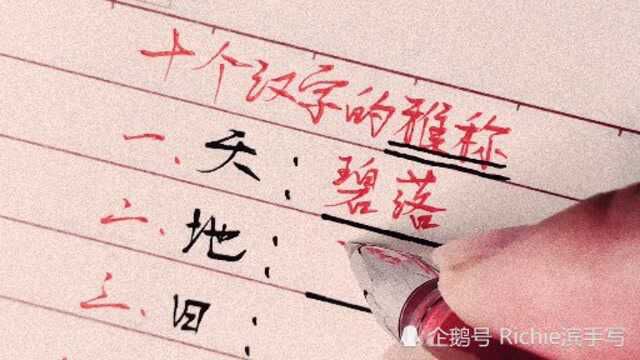 十个汉字的雅称
一、天：碧落
二、地：
三、日：
企鹅号 Richie滨手写